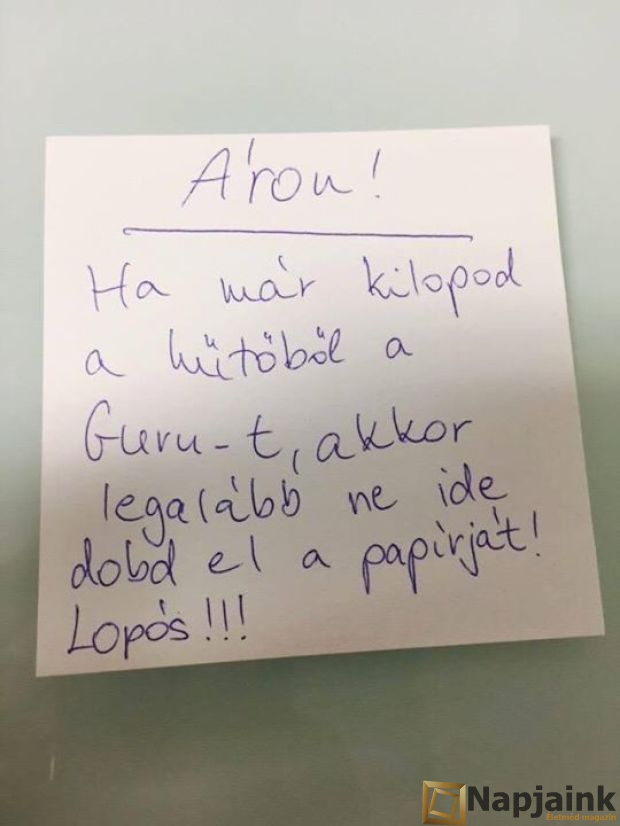 Áron!
Ha már kilopod
a hűtőből a
Guru-t, akkor
legalább ne ide
dobd el a papírját!
Lopós!!!
Napjaink
Életmód magazin